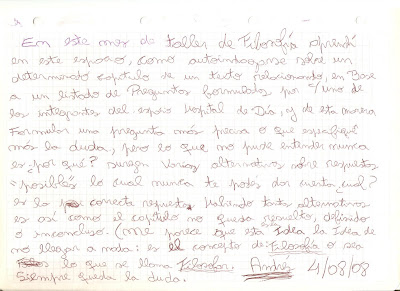 En este mes de taller de Filosofía aprendí
en este espacio, como autoindagarse sobre un
determinado capitulo de un texto relacionando, en Base
a un listado de Preguntas formuladas por c/uno de
los integrantes del espacio Hospital de Día, y de esta manera
Formular una pregunta más precisa o que especifique
más la duda, pero lo que no pude entender nunca
es ¿por qué? surgen Varias alternativas sobre respuestas
"posibles" lo cual nunca te podés dar cuenta ¿cual?
es la correcta respuesta. Habiendo tantas alternativas
es así como el capitulo no queda resuelto, definido
o inconcluso. (me parece que esta Idea la Idea de
no llegar a nada: es el concepto de Filosofía o sea
lo que se llama Filosofar. Andrés 4/08/08
Siempre queda la duda.